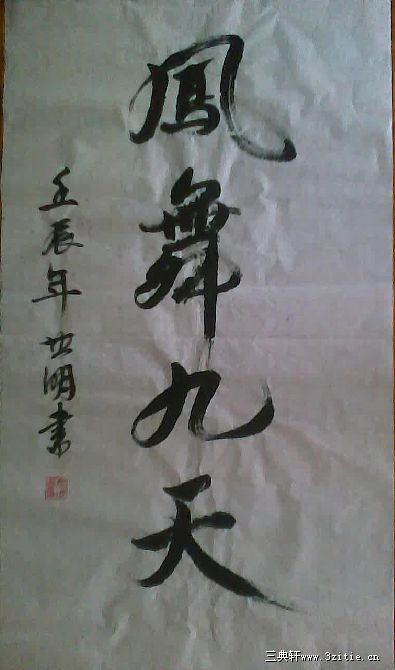 鳳舞九天
壬辰年世明書
三典轩www.3zitie.cn